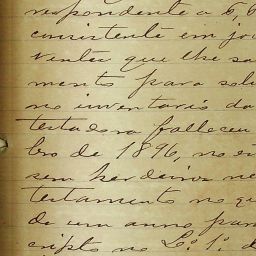 respondente a 6,6
consistente em jo
ventes que lhe sa
mento para solu
no inventario da
testadora falleceu
bro de 1896, no es
sem herdeiros ne
testamento no qu
de um anno para
cripto no L.º 1.º d